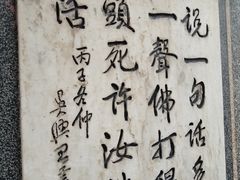 说一句话多
一聲佛打得
頭死许汝
活
丙子冬仲
吳興